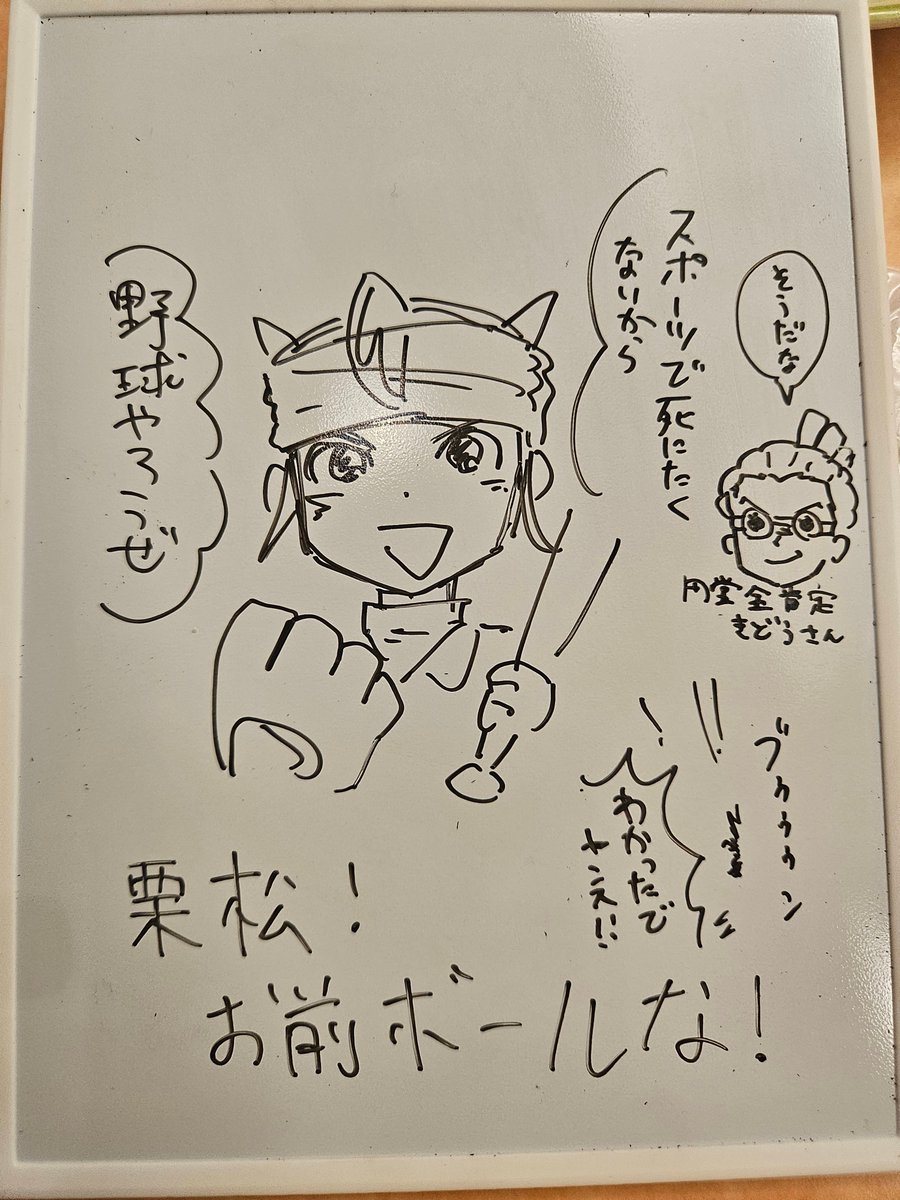 野球やろうぜ
スポーツで死にたく
ないから
そうだな
円堂全肯定
きどうさん
ブゥゥゥン
わかったで
ヤンス!!
栗松!
お前ボールな!